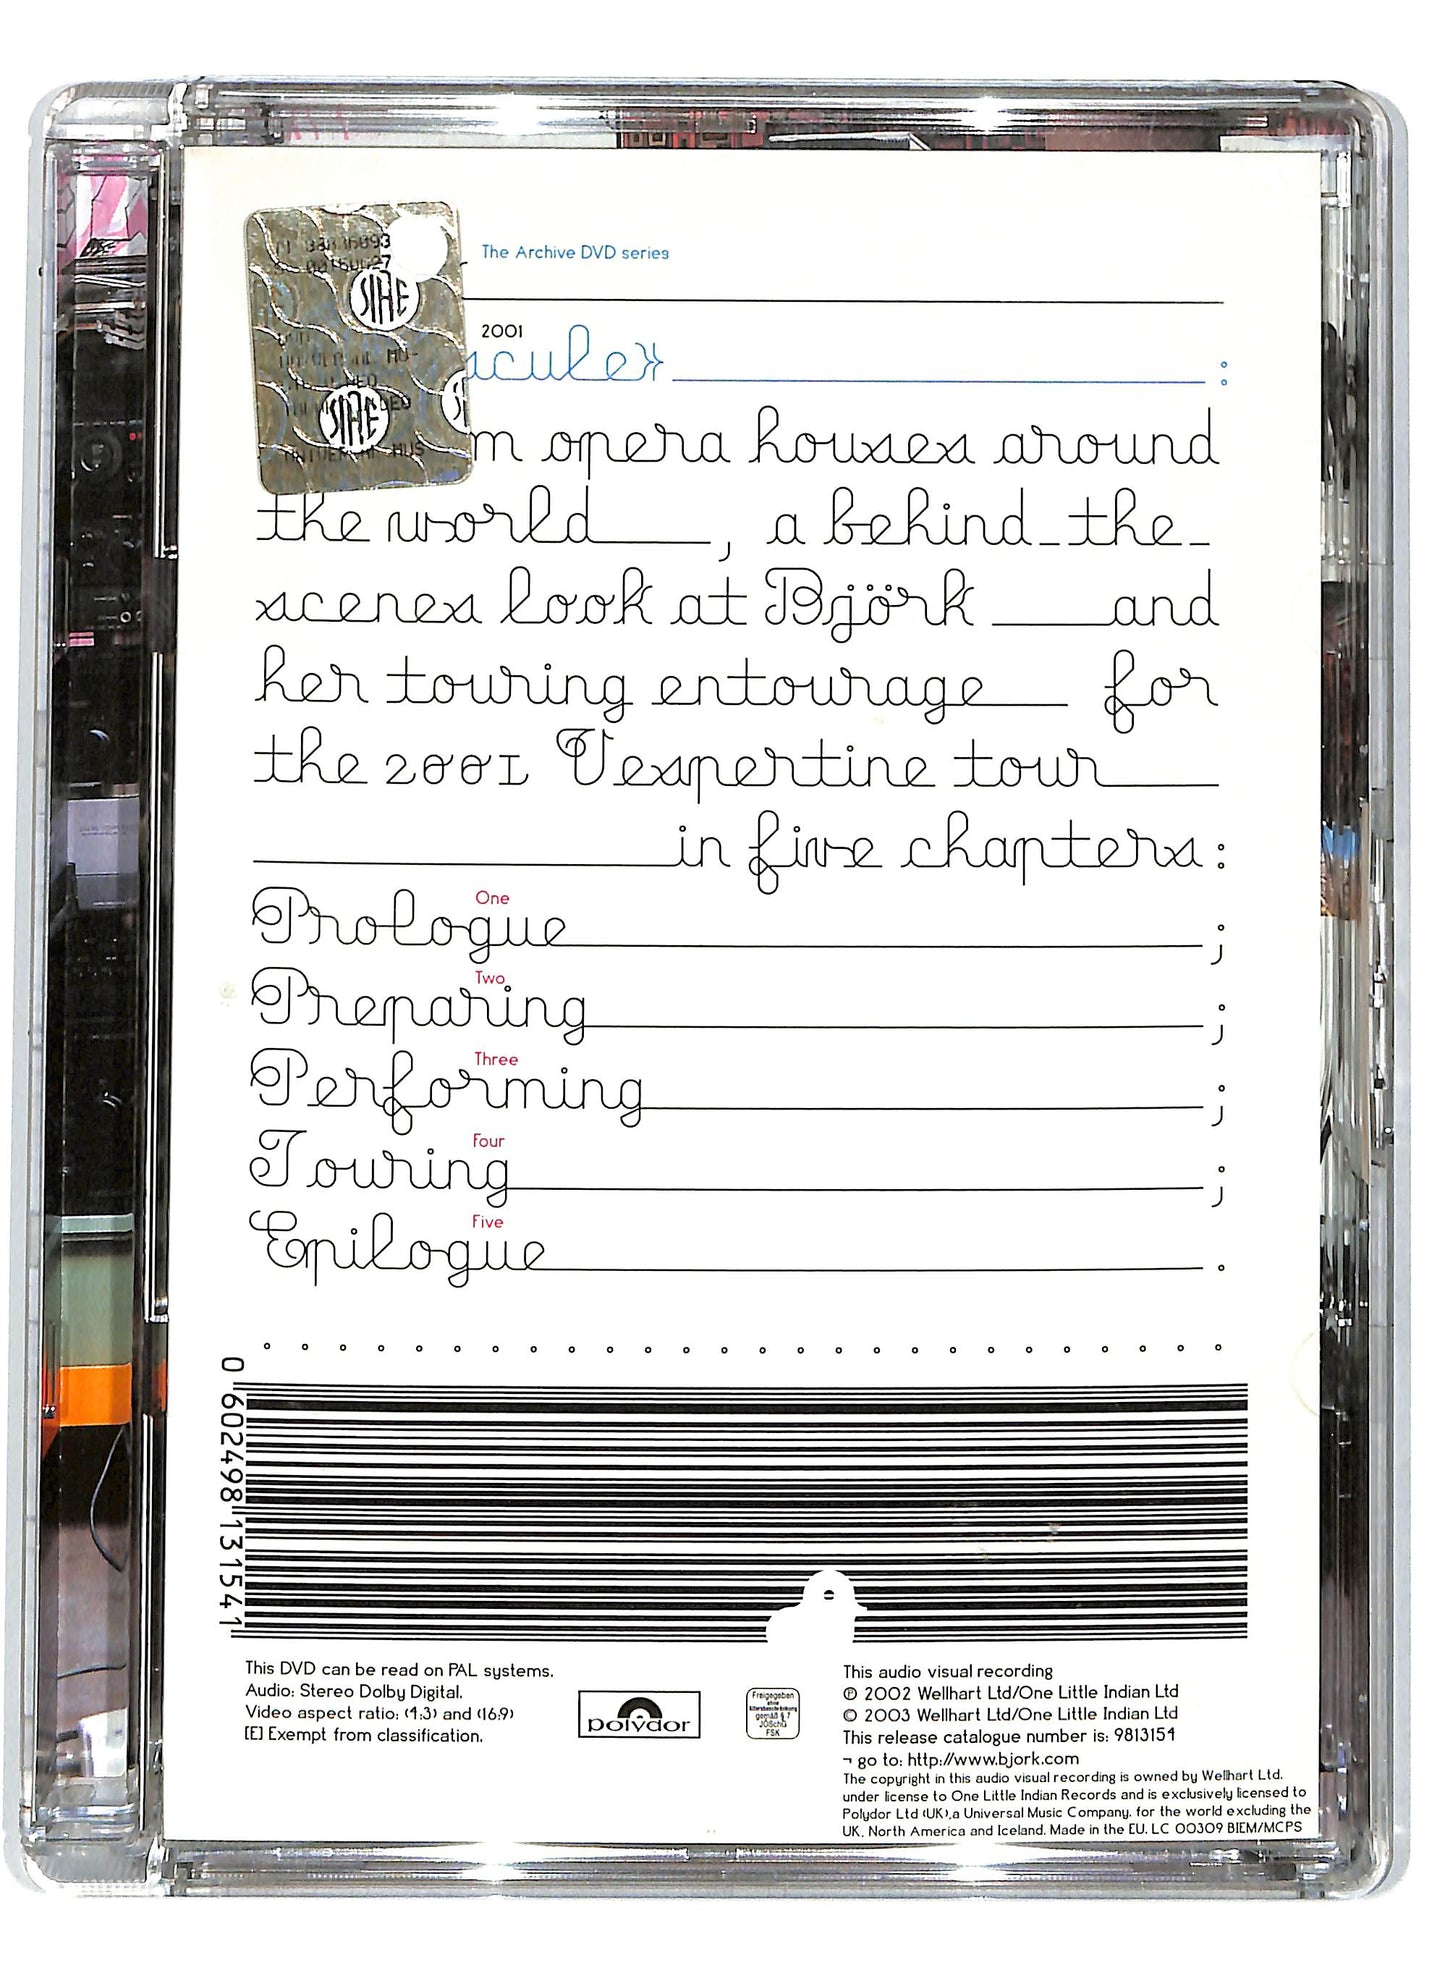 The Archive DVD series
2001
scule»:
m opera houses around
the world, a behind-the-
scenes look at Björk and
her touring entourage for
the 2001 Vespertine tour
in five chapters:
One
Prologue;
Two
Preparing;
Three
Performing;
Four
Touring;
Five
Epilogue.
SIAE
SIAE
0 602498 131541
This DVD can be read on PAL systems.
Audio: Stereo Dolby Digital.
Video aspect ratio: (4:3) and (16:9)
[E] Exempt from classification.
polydor
Freigegeben
ohne
Altersbeschränkung
gemäß § 7
JÖSchG
FSK
This audio visual recording
℗ 2002 Wellhart Ltd/One Little Indian Ltd
© 2003 Wellhart Ltd/One Little Indian Ltd
This release catalogue number is: 9813154
¬ go to: http://www.bjork.com
The copyright in this audio visual recording is owned by Wellhart Ltd.
under license to One Little Indian Records and is exclusively licensed to
Polydor Ltd (UK),a Universal Music Company. for the world excluding the
UK. North America and Iceland. Made in the EU. LC 00309 BIEM/MCPS